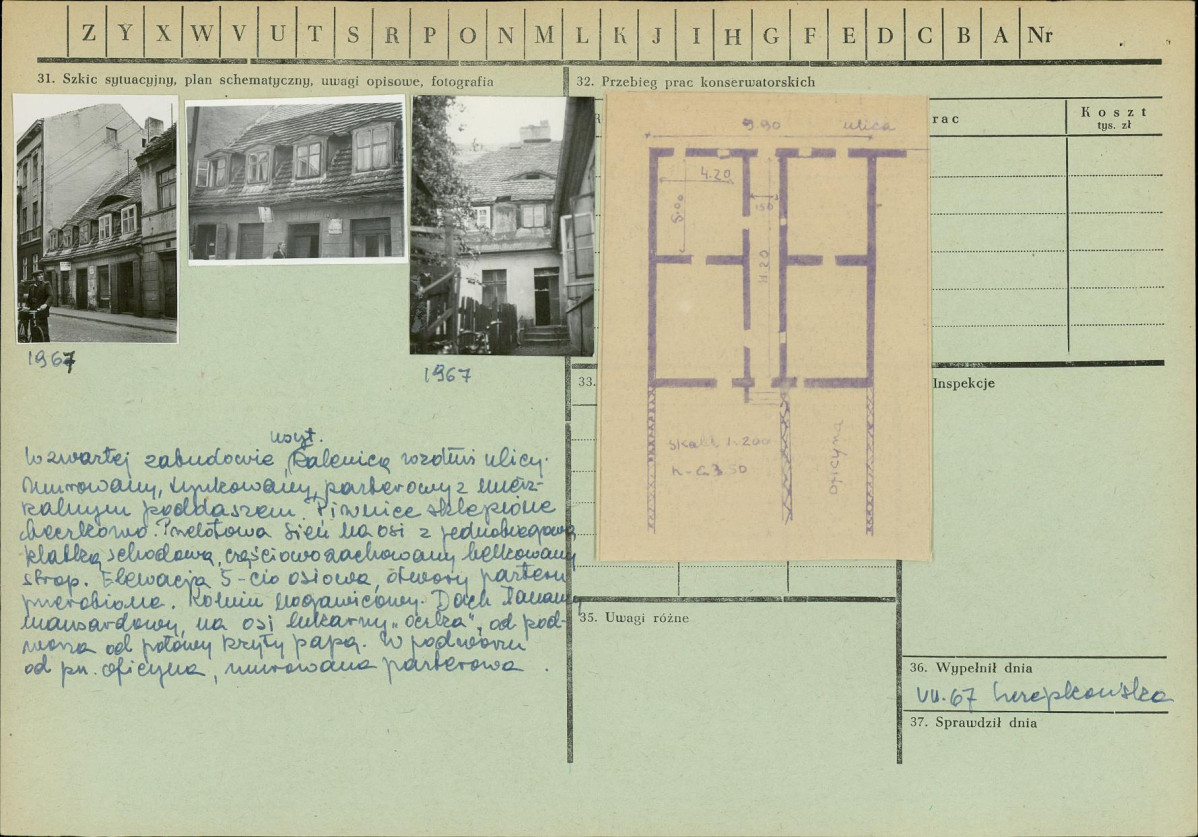 Z Y X W V U T S R P O N M L K J I H G F E D C B A Nr
31. Szkic sytuacyjny, plan schematyczny, uwagi opisowe, fotografia
32. Przebieg prac konserwatorskich
R
rac
Koszt
tys. zł
9.90 ulica
4.20
150
5.00
11.20
skala 1:200
oficyna
1967
1967
usyt.
W zwartej zabudowie, kalenicą wzdłuż ulicy.
Murowany, tynkowany, parterowy z miesz-
kalnym poddaszem. Piwnice sklepione
beczkowo. Przelotowa sień na osi z jednobiegową
klatką schodową, częściowo zachowany belkowany
strop. Elewacja 5-cio osiowa, otwory parteru
przerobione. Komin nogawicowy. Dach łamany
mansardowy, na osi lukarny „oczka", od pod-
wórza od połowy kryty papą. W podwórzu
od pn. oficyna, murowana parterowa.
33.
Inspekcje
35. Uwagi różne
36. Wypełnił dnia
VII.67
37. Sprawdził dnia